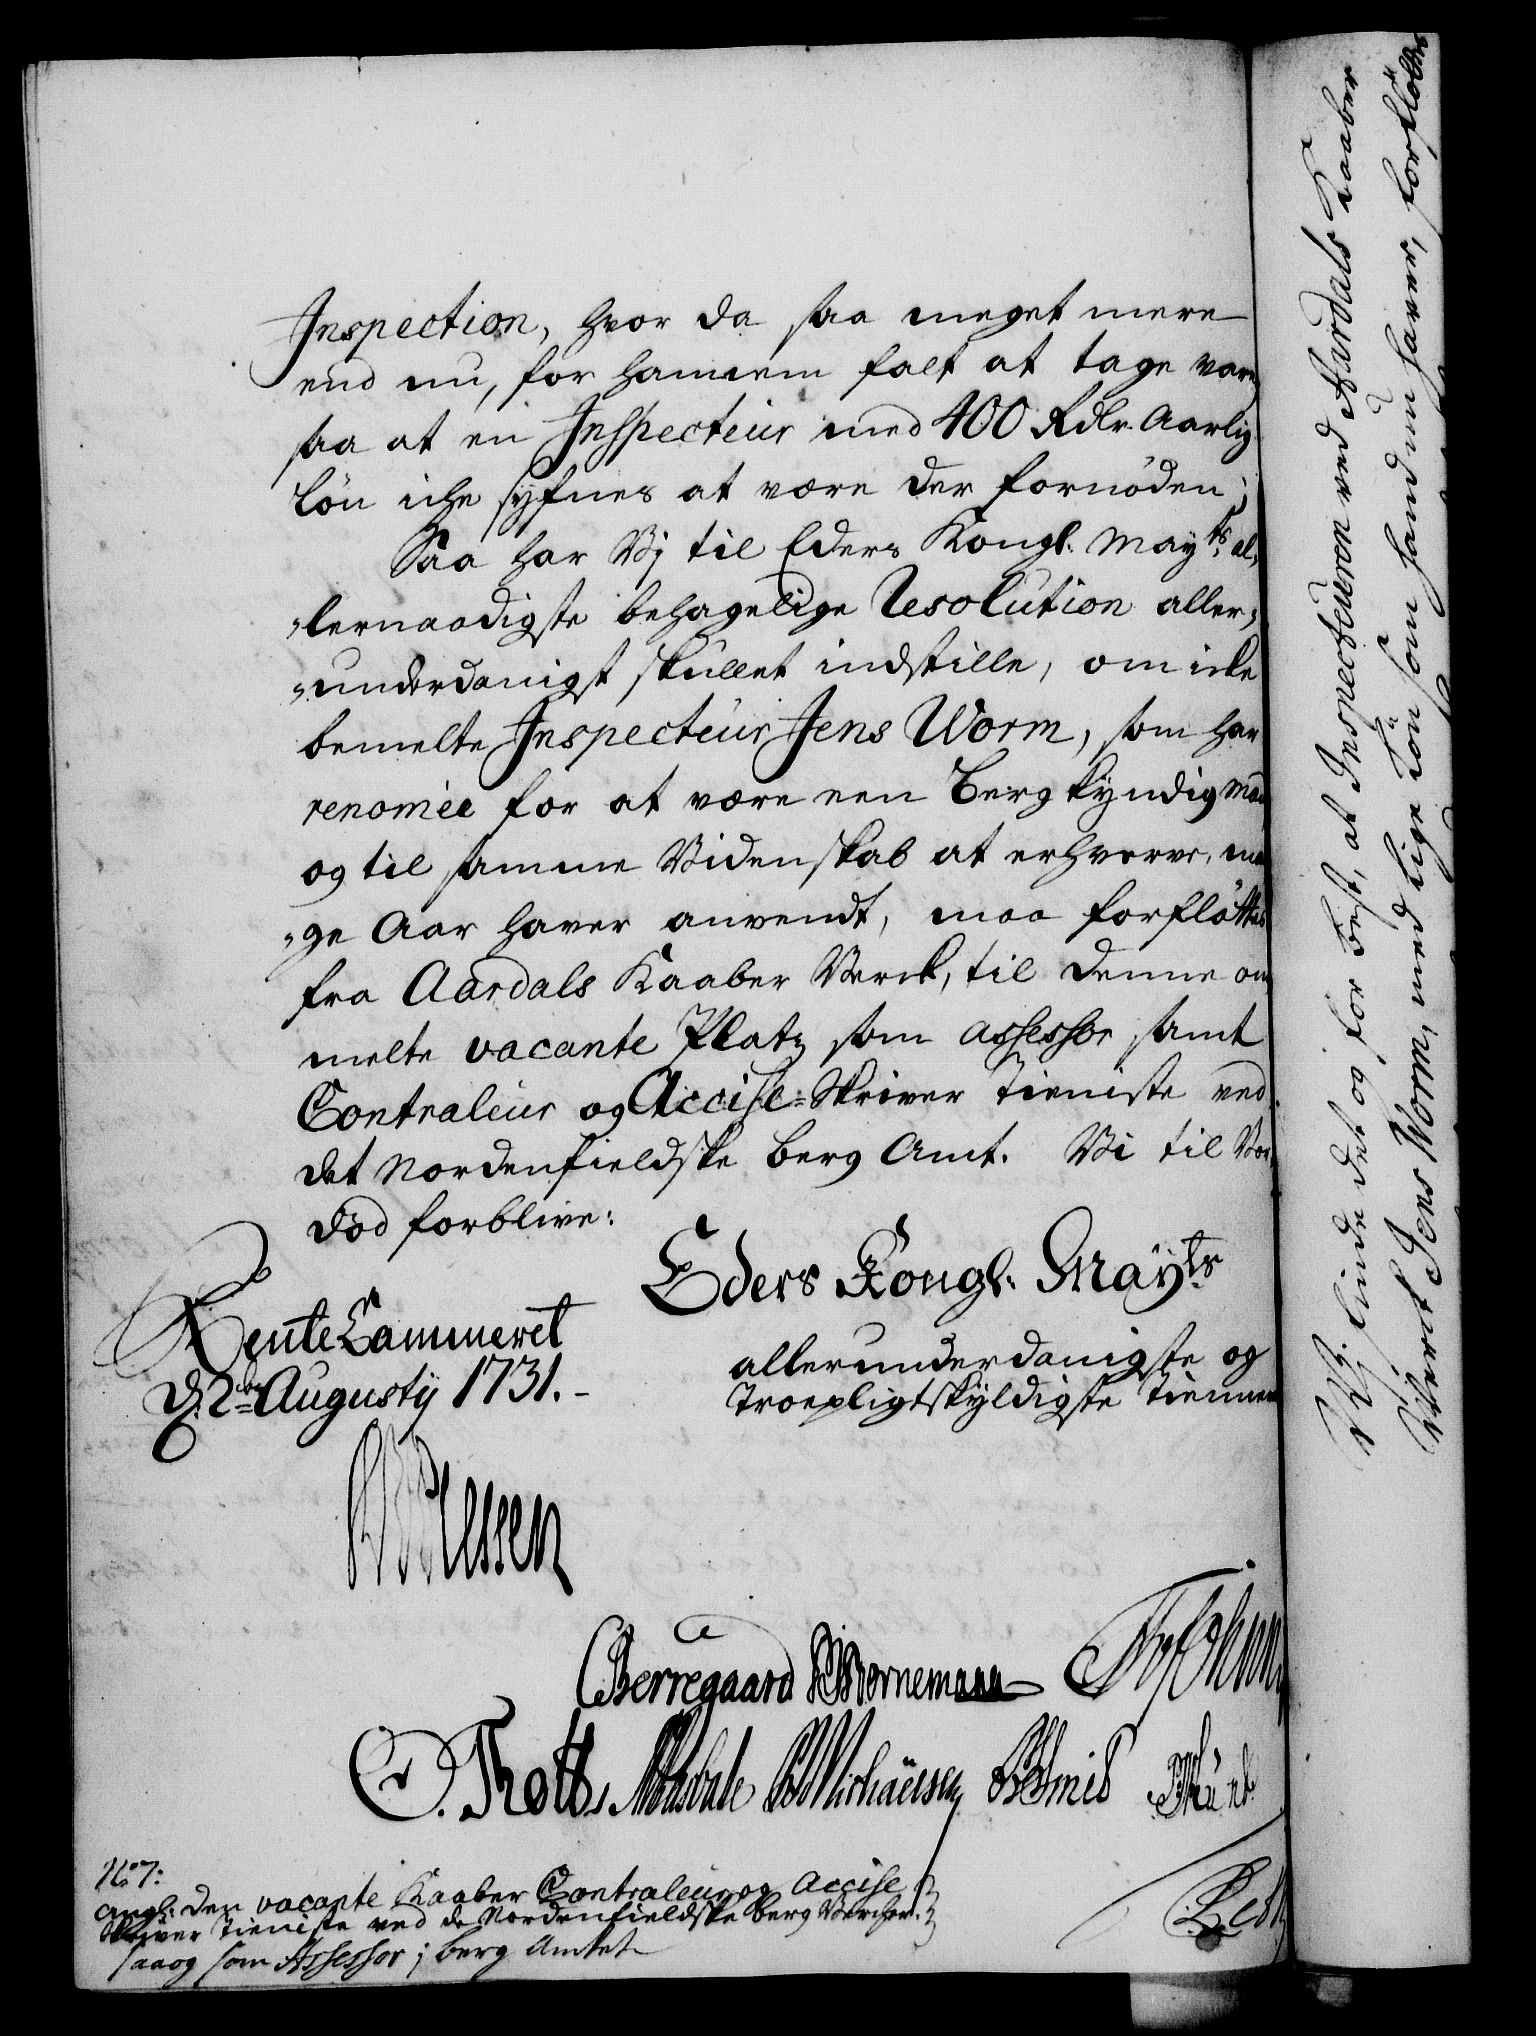 Inspection, hvor da saa meget mere
end nu, for hannem falt at tage vare
saa at en Inspecteur med 400 Rdlr. Aarlig
Lön iche syfnes at være der fornöden;
Saa har Vi til Eders Kongl. Mayts al,
„lernaadigste behagelige Resolution aller„
„underdanigst skullet indstille, om icke
bemelte Inspecteur Jens Worm, som har
renomée for at være een Bergkyndig Mand
og til samme Videnskab at erhverve, man
„ge Aar haver anvendt, maa forflöttes
fra Aardals Kaaber Verck, til denne om
melte vacante Platz som Assessor samt
Contraleur og Accise-Skriver Tieniste ved
det Nordenfieldske Berg Amt. Vi til Vor
död forblive:
Eders Kongl. Mayts
RenteCammeret
d. 2den Augustij 1731.
allerunderdanigste og
Troepligtskyldigste Tiennere
Berregaard Bornemann
Thott
No 7:
angl: den vacante Kaaber Contraleur og Accise
Skriver Tieniste ved de Nordenfieldske Berg Vercher.
saa og som Assessor i Berg Amtet
Vi finde det og for best, at Inspecteuren ved Aardals Kaaber
Verck Jens Worm, med lige Lön som hand nu haver, forflöttes